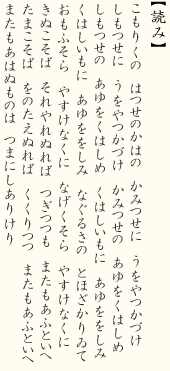 【読み】
こもりくの　はつせのかはの　かみつせに　うをやつかづけ
しもつせに　うをやつかづけ　かみつせの　あゆをくはしめ
しもつせの　あゆをくはしめ　くはしいもに　あゆををしみ
くはしいもに　あゆををしみ　なぐるさの　とほざかりゐて
おもふそら　やすけなくに　なげくそら　やすけなくに
きぬこそば　それやれぬれば　つぎつつも　またもあふといへ
たまこそば　をのたえぬれば　くくりつつ　またもあふといへ
またもあはぬものは　つまにしありけり